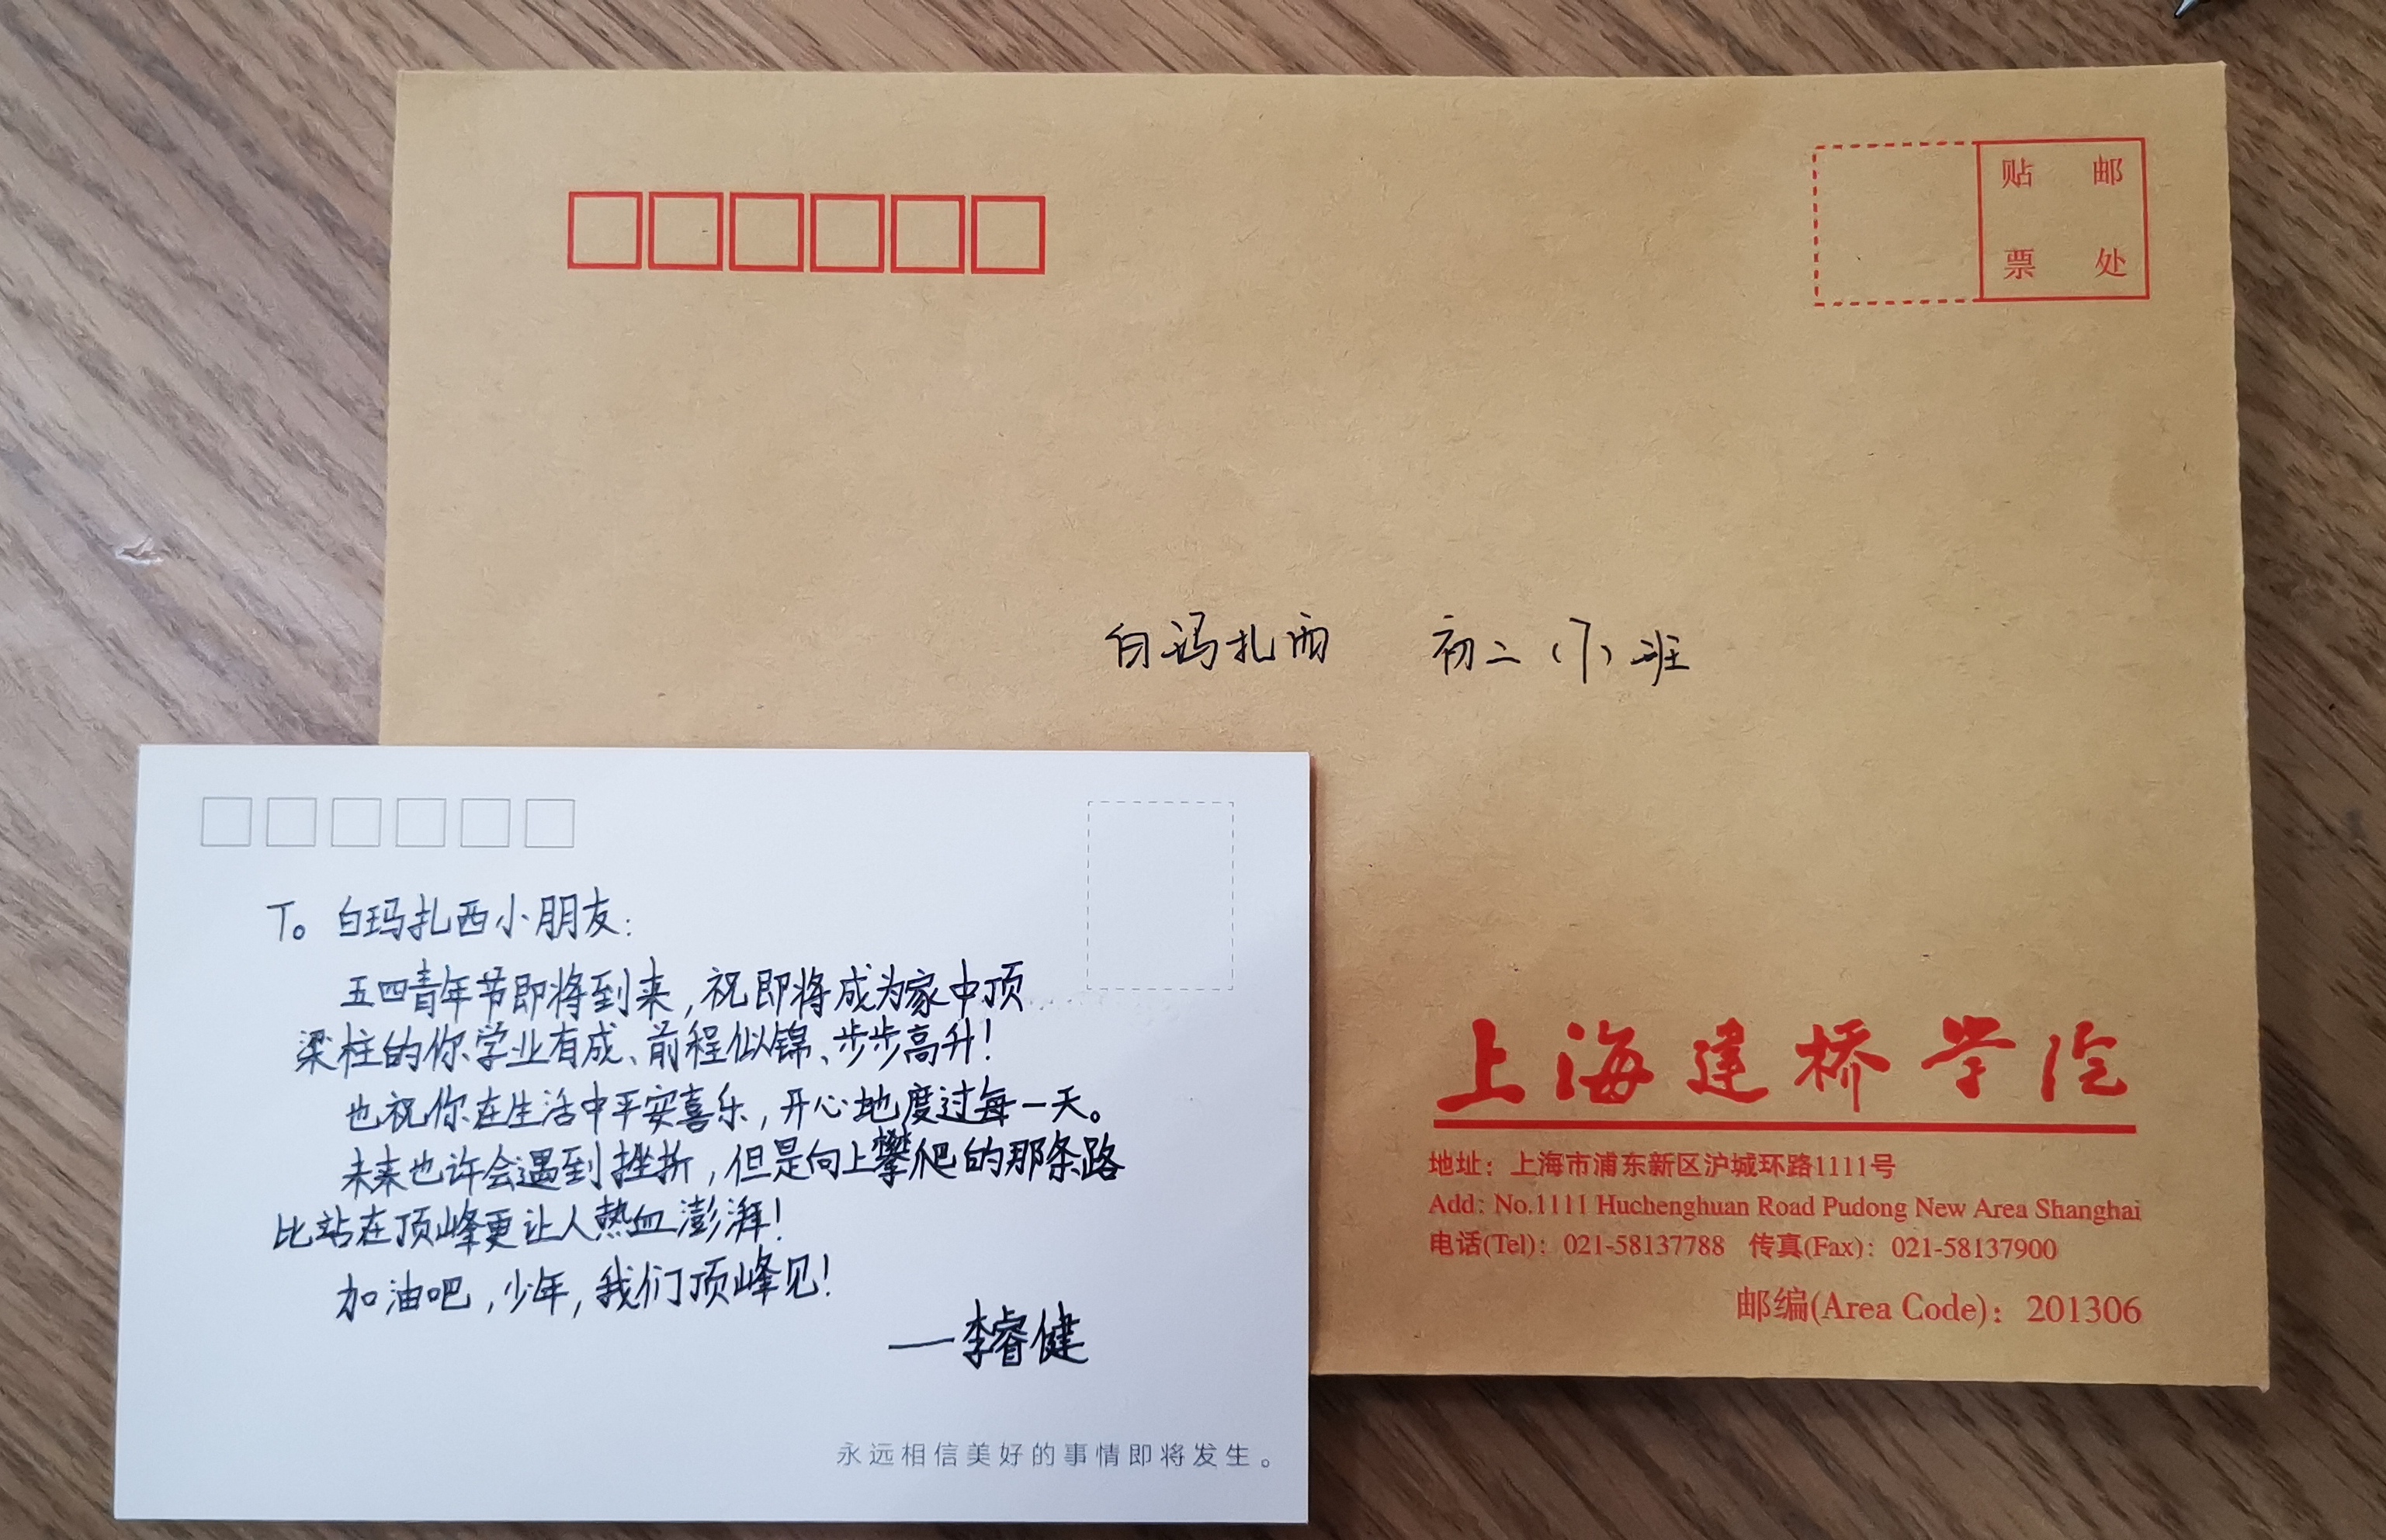 贴 邮
票 处
白玛扎西 初二 班
上海建桥学院
地址：上海市浦东新区沪城环路1111号
Add: No.1111 Huchenghuan Road Pudong New Area Shanghai
电话(Tel)：021-58137788 传真(Fax)：021-58137900
邮编(Area Code)：201306
To 白玛扎西小朋友：
五四青年节即将到来，祝即将成为家中顶
梁柱的你学业有成、前程似锦、步步高升！
也祝你在生活中平安喜乐，开心地度过每一天。
未来也许会遇到挫折，但是向上攀爬的那条路
比站在顶峰更让人热血澎湃！
加油吧，少年，我们顶峰见！
——李睿健
永远相信美好的事情即将发生。